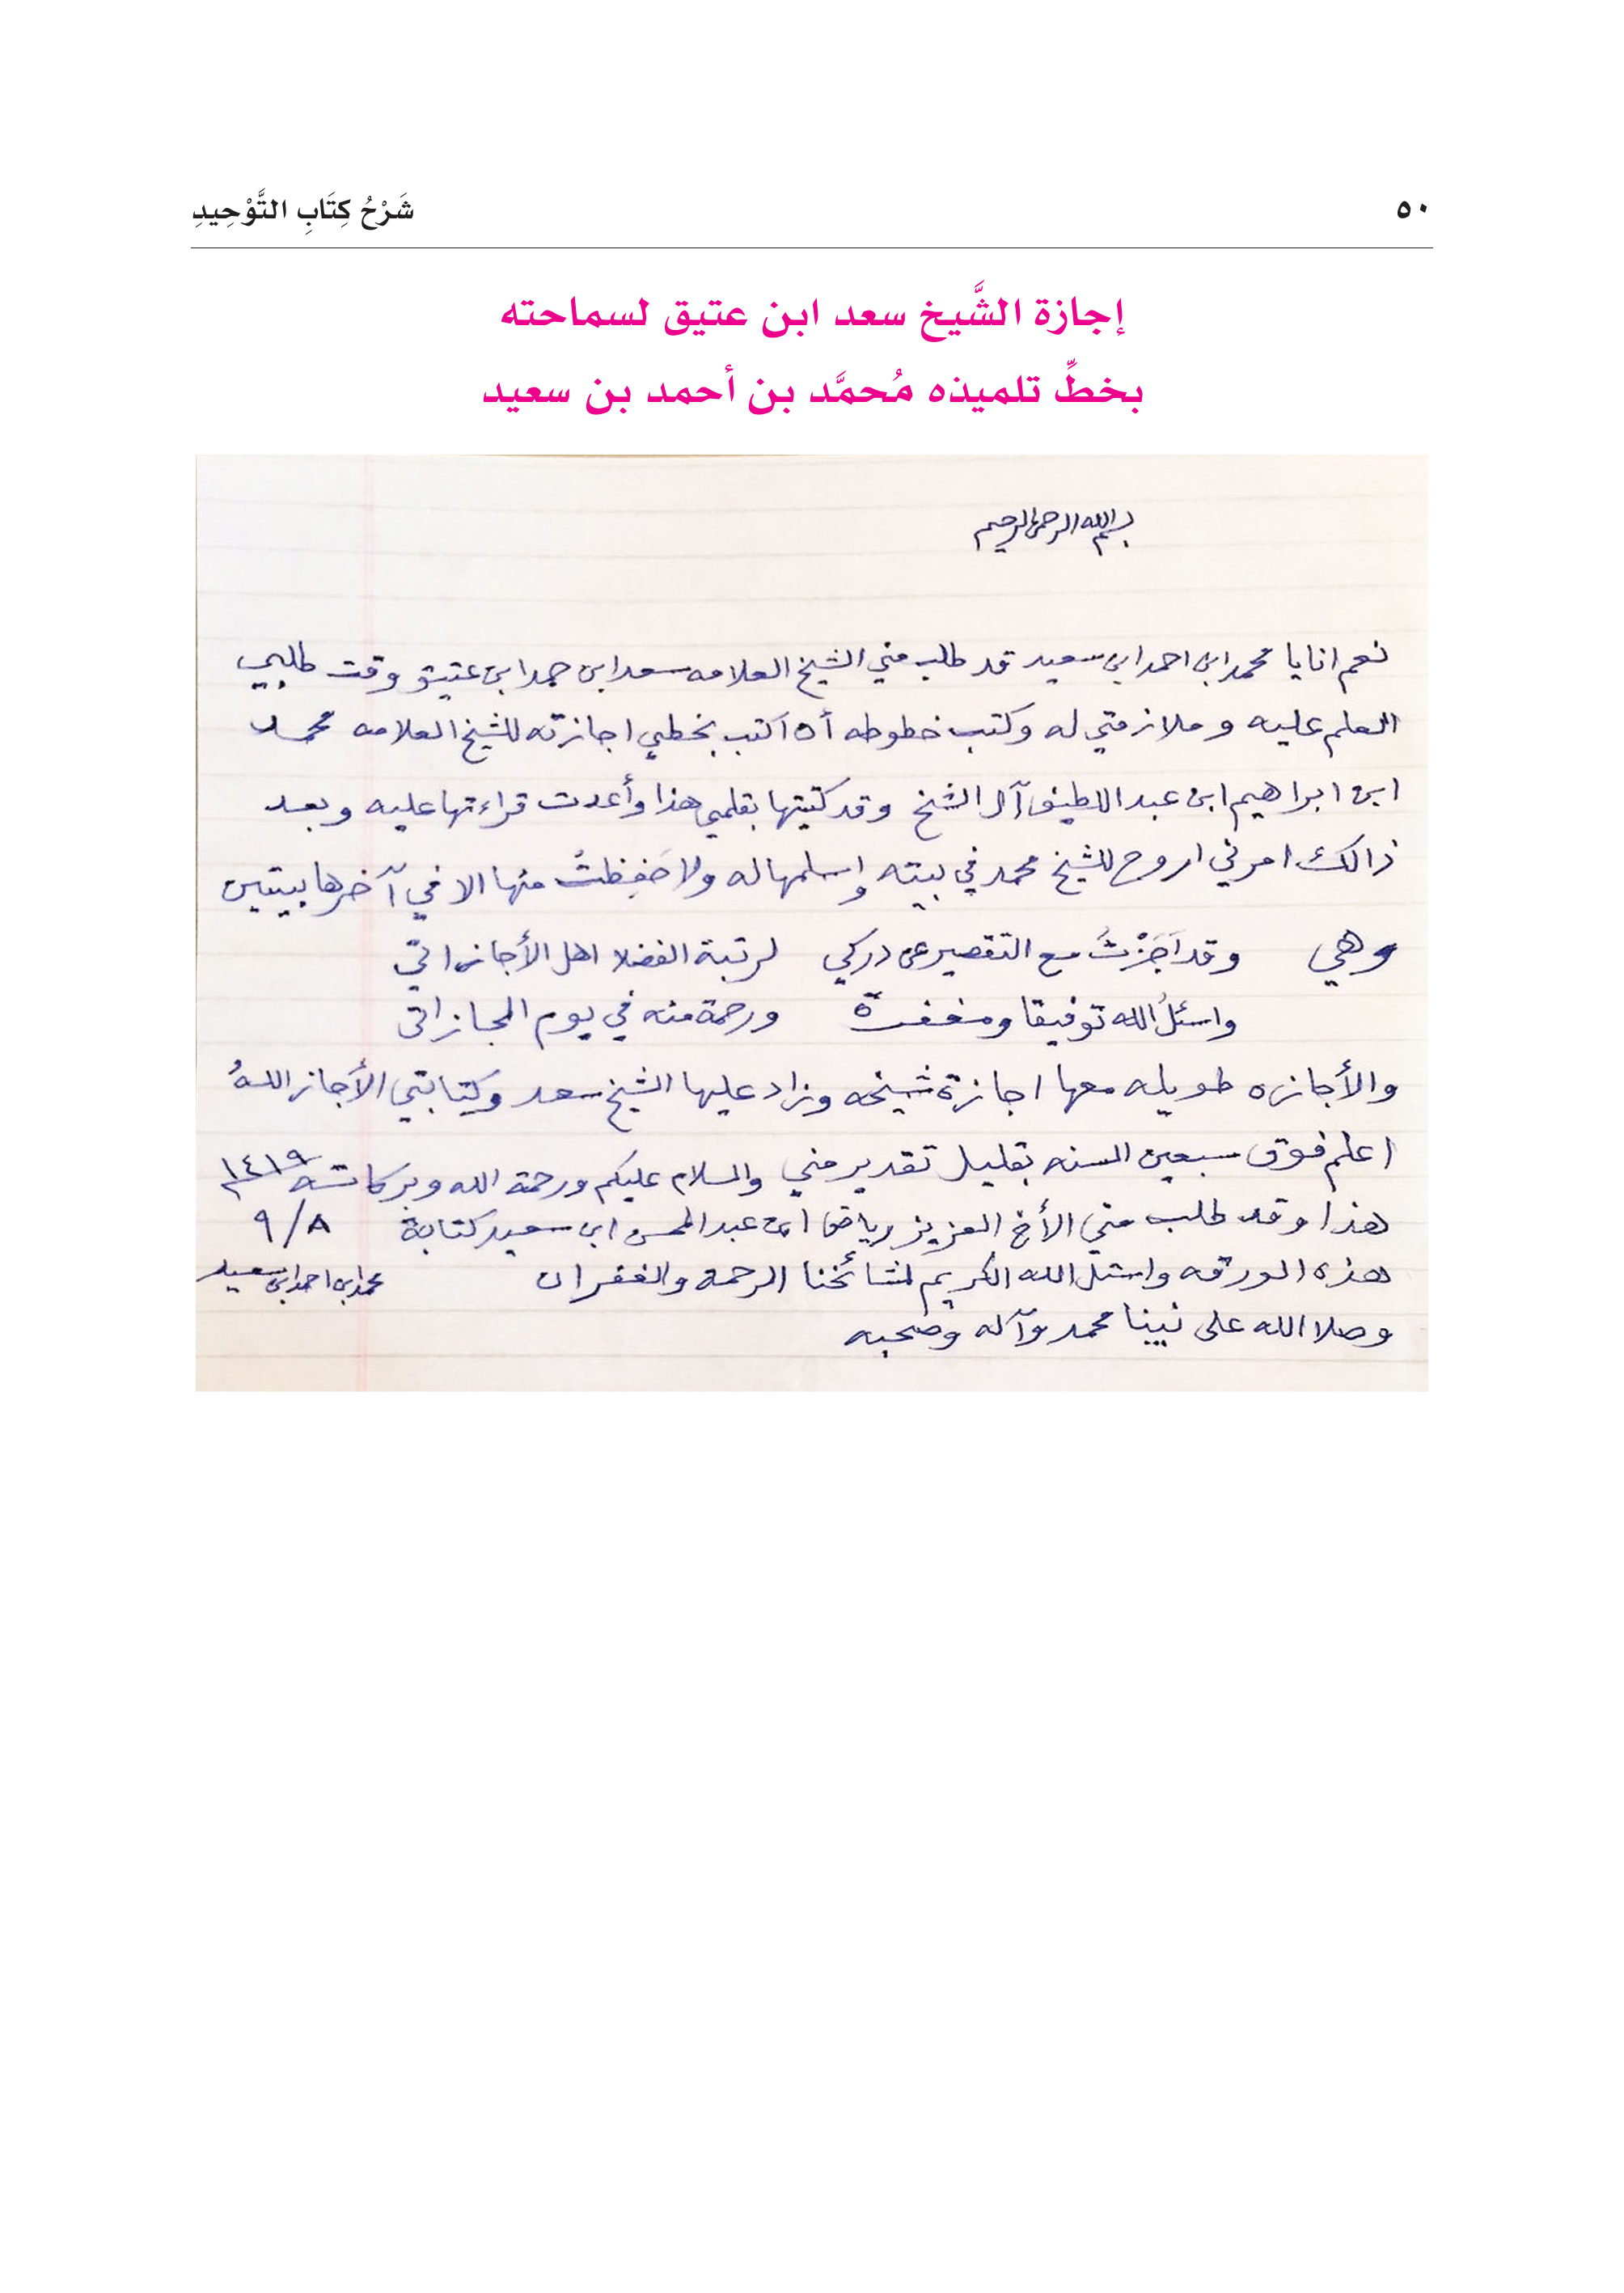 ٥٠
شَرْحُ كِتَابِ التَّوْحِيدِ
إجازة الشَّيخ سعد ابن عتيق لسماحته
بخطِّ تلميذه مُحمَّد بن أحمد بن سعيد
بسم الله الرحمن الرحيم
نعم انا يا محمد ابن احمد ابن سعيد قد طلب مني الشيخ العلامه سعد ابن حمد ابن عتيق وقت طلبي
العلم عليه وملازمتي له وكتب خطوطه أن اكتب بخطي اجازته للشيخ العلامه محمد
ابن ابراهيم ابن عبد اللطيف آل الشيخ وقد كتبتها بقلمي هذا وأعدت قراءتها عليه وبعد
ذالك امرني اروح للشيخ محمد في بيته واسلمها له ولا حَفِظتُ منها الا في آخرها بيتين
وهي وقد اَجَزْتُ مع التقصير عن دركي لرتبة الفضلا اهل الأجازاتي
واسئلُ الله توفيقا ومغفرة ورحمة منه في يوم المجازاتى
والأجازه طويله معها اجازة شيخه وزاد عليها الشيخ سعد وكتابتي الأجاز اللهُ
اعلم فوق سبعين السنه بقليل تقدير مني والسلام عليكم ورحمة الله وبركاته ١٤١٩
هذا وقد طلب مني الأخ العزيز رياض ابن عبد المحسن ابن سعيد كتابة ٩/٨
هذه الورقه واسئل الله الكريم لمشائخنا الرحمه والغفران محمد ابن احمد ابن سعيد
وصلا الله على نبينا محمد وآله وصحبه